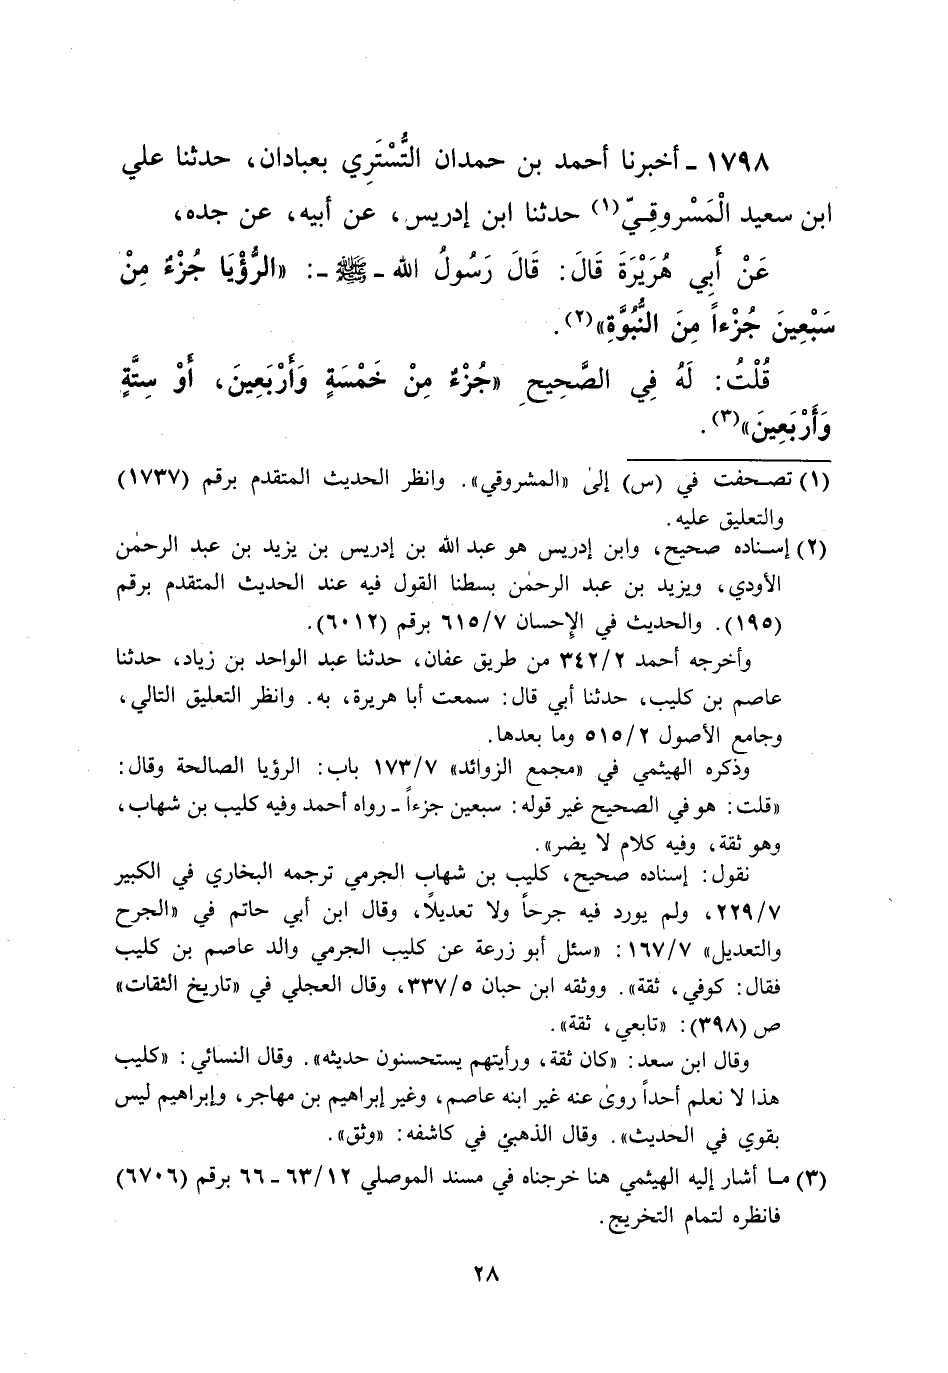 ١٧٩٨ ـ أخبرنا أحمد بن حمدان التُّسْتَرِي بعبادان، حدثنا علي
ابن سعيد الْمَسْروقيّ(١) حدثنا ابن إدريس، عن أبيه، عن جده،
عَنْ أَبِي هُرَيْرَةَ قَالَ: قَالَ رَسُولُ الله ـ ﷺ ـ: «الرُّؤْيَا جُزْءٌ مِنْ
سَبْعِينَ جُزْءاً مِنَ النُّبُوَّةِ»(٢).
قُلْتُ: لَهُ فِي الصَّحِيحِ «جُزْءٌ مِنْ خَمْسَةٍ وَأَرْبَعِينَ، أَوْ سِتَّةٍ
وَأَرْبَعِينَ»(٣).
(١) تصحفت في (س) إلىٰ «المشروقي». وانظر الحديث المتقدم برقم (١٧٣٧)
والتعليق عليه.
(٢) إسناده صحيح، وابن إدريس هو عبد الله بن إدريس بن يزيد بن عبد الرحمٰن
الأودي، ويزيد بن عبد الرحمٰن بسطنا القول فيه عند الحديث المتقدم برقم
(١٩٥). والحديث في الإحسان ٦١٥/٧ برقم (٦٠١٢).
وأخرجه أحمد ٣٤٢/٢ من طريق عفان، حدثنا عبد الواحد بن زياد، حدثنا
عاصم بن كليب، حدثنا أبي قال: سمعت أبا هريرة، به. وانظر التعليق التالي،
وجامع الأصول ٥١٥/٢ وما بعدها.
وذكره الهيثمي في «مجمع الزوائد» ١٧٣/٧ باب: الرؤيا الصالحة وقال:
«قلت: هو في الصحيح غير قوله: سبعين جزءاً ـ رواه أحمد وفيه كليب بن شهاب،
وهو ثقة، وفيه كلام لا يضر».
نقول: إسناده صحيح، كليب بن شهاب الجرمي ترجمه البخاري في الكبير
٢٢٩/٧، ولم يورد فيه جرحاً ولا تعديلًا، وقال ابن أبي حاتم في «الجرح
والتعديل» ١٦٧/٧: «سئل أبو زرعة عن كليب الجرمي والد عاصم بن كليب
فقال: كوفي، ثقة». ووثقه ابن حبان ٣٣٧/٥، وقال العجلي في «تاريخ الثقات»
ص (٣٩٨): «تابعي، ثقة».
وقال ابن سعد: «كان ثقة، ورأيتهم يستحسنون حديثه». وقال النسائي: «كليب
هذا لا نعلم أحداً روىٰ عنه غير ابنه عاصم، وغير إبراهيم بن مهاجر، وإبراهيم ليس
بقوي في الحديث». وقال الذهبيّ في كاشفه: «وثق».
(٣) ما أشار إليه الهيثمي هنا خرجناه في مسند الموصلي ٦٣/١٢ ـ ٦٦ برقم (٦٧٠٦)
فانظره لتمام التخريج.
٢٨